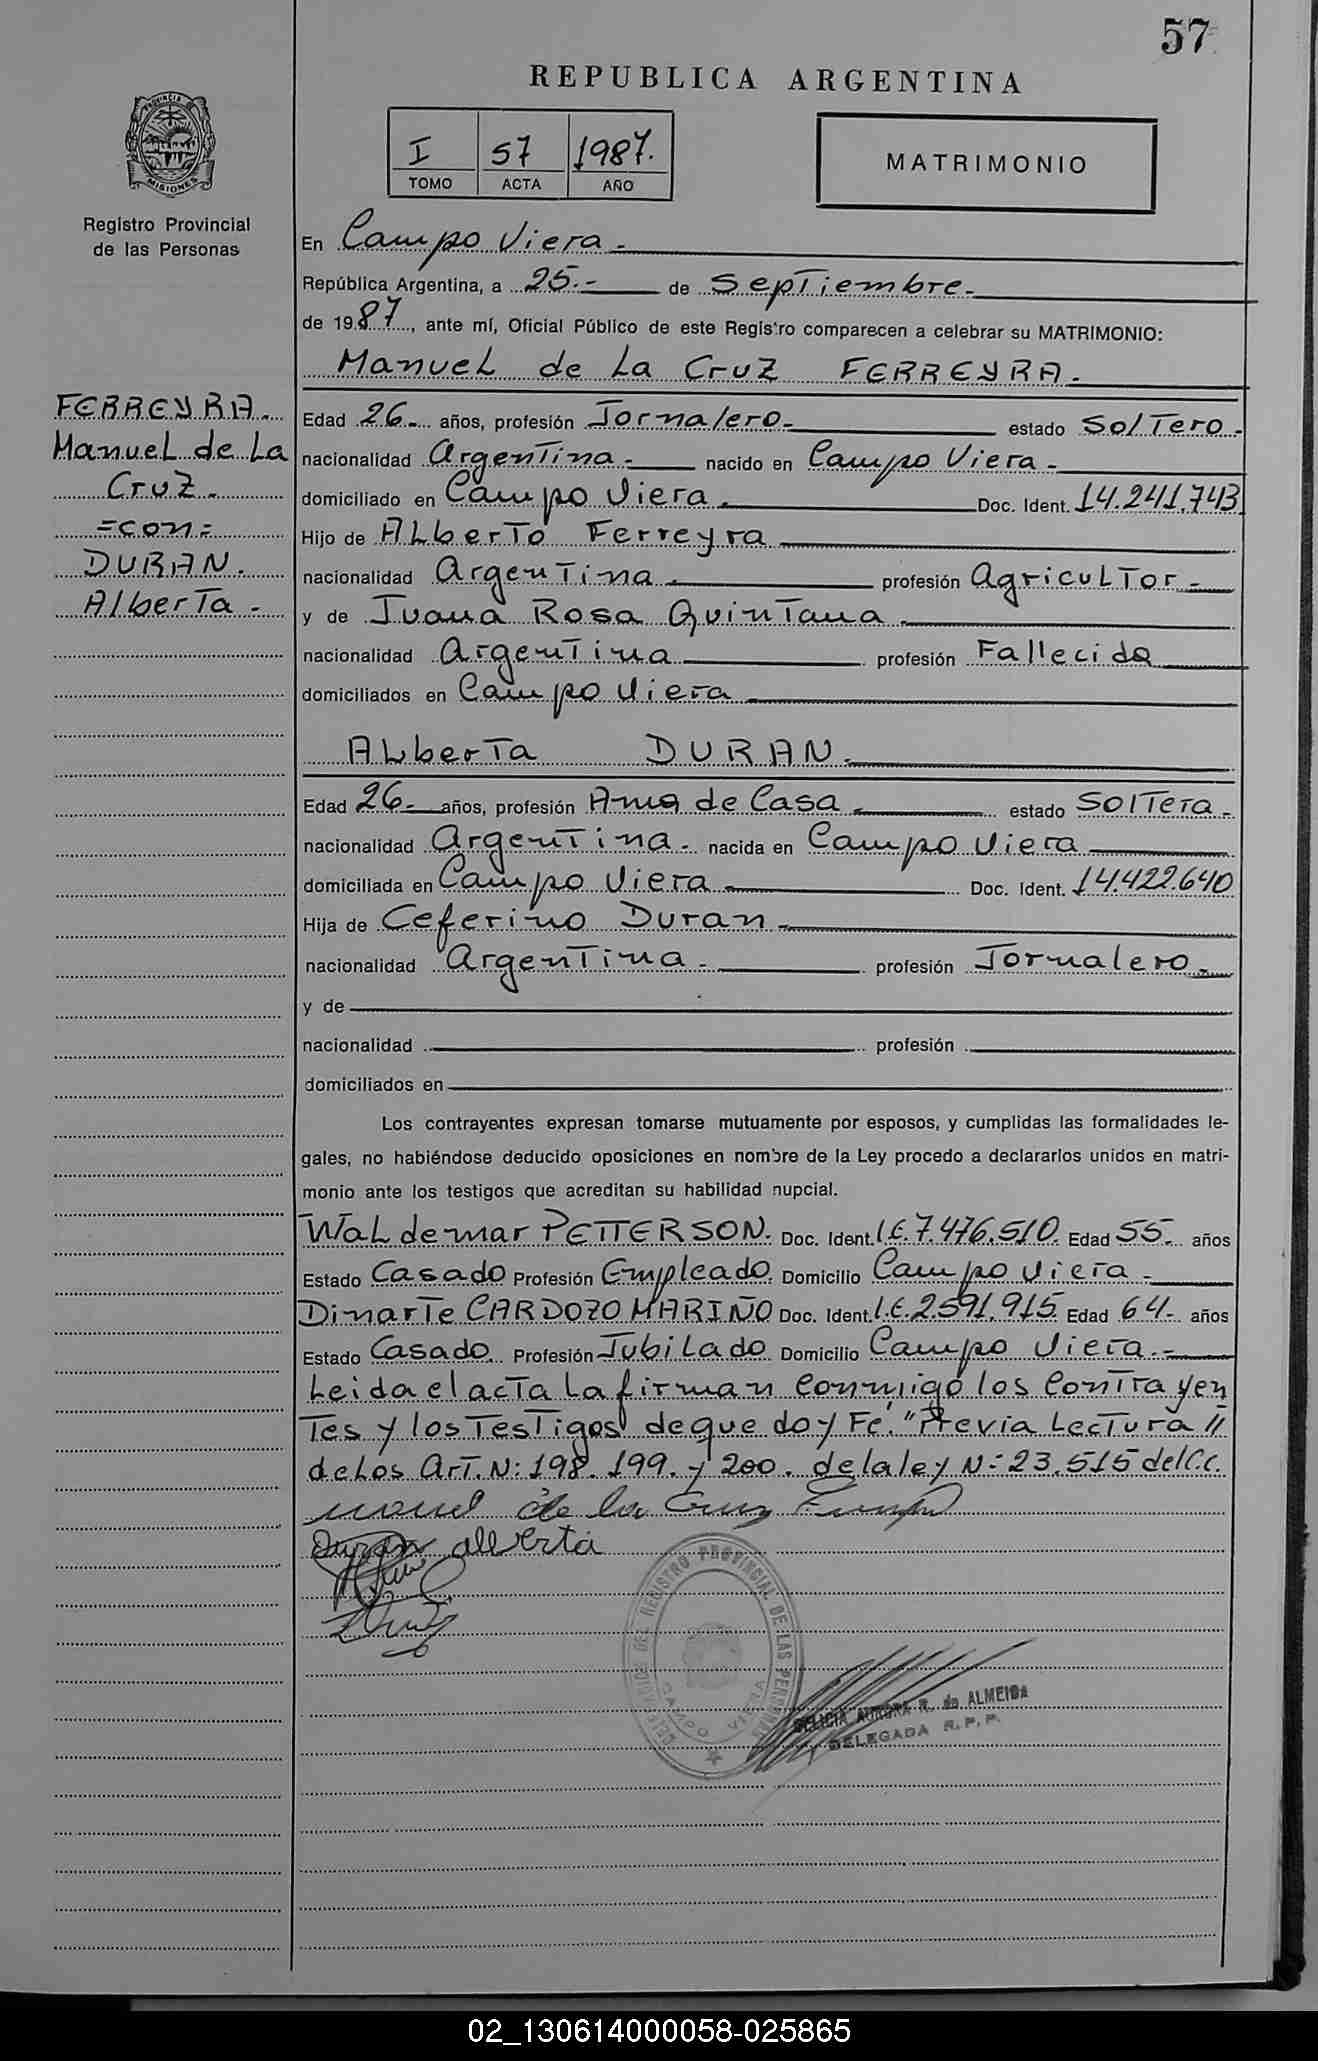 57
REPUBLICA ARGENTINA
I 57 1987.
TOMO ACTA AÑO
MATRIMONIO
PROVINCIA DE MISIONES
Registro Provincial
de las Personas
En Campo Viera.
República Argentina, a 25.- de Septiembre.
de 1987, ante mí, Oficial Público de este Registro comparecen a celebrar su MATRIMONIO:
Manuel de La Cruz FERREYRA.
FERREYRA.
Manuel de La
Cruz.
=con=
DURAN.
Alberta.
Edad 26- años, profesión Jornalero. estado Soltero.
nacionalidad Argentina. nacido en Campo Viera.
domiciliado en Campo Viera. Doc. Ident. 14.241.743
Hijo de Alberto Ferreyra
nacionalidad Argentina. profesión Agricultor.
y de Juana Rosa Quintana.
nacionalidad Argentina profesión Fallecida
domiciliados en Campo Viera
Alberta DURAN.
Edad 26- años, profesión Ama de Casa. estado Soltera.
nacionalidad Argentina. nacida en Campo Viera
domiciliada en Campo Viera Doc. Ident. 14.422.640
Hija de Ceferino Duran
nacionalidad Argentina. profesión Jornalero.
y de
nacionalidad profesión
domiciliados en
Los contrayentes expresan tomarse mutuamente por esposos, y cumplidas las formalidades le-
gales, no habiéndose deducido oposiciones en nombre de la Ley procedo a declararlos unidos en matri-
monio ante los testigos que acreditan su habilidad nupcial.
Waldemar PETTERSON. Doc. Ident. L.E.7.476.510. Edad 55.- años
Estado Casado Profesión Empleado. Domicilio Campo Viera.
Dinarte CARDOZO MARIÑO Doc. Ident. L.E.2.591.915 Edad 64- años
Estado Casado. Profesión Jubilado Domicilio Campo Viera.
Leida el acta la firman conmigo los Contrayen
tes y los Testigos de que doy Fé. "Previa Lectura //
de Los Art. N: 198. 199. y 200. de la ley N: 23.515 del C.C.
de la Cruz
Duran alverta
DELEGACION DEL REGISTRO PROVINCIAL DE LAS PERSONAS
CAMPO VIERA
DELICIA AURORA R. de ALMEIDA
DELEGADA R.P.P.
02_130614000058-025865